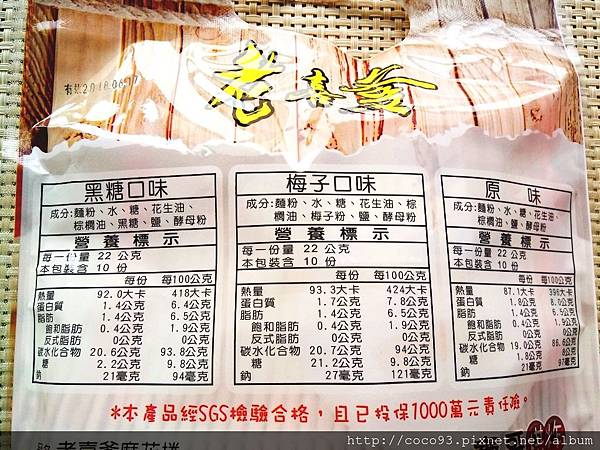 有效2018.06.17
老喜爺
黑糖口味
成分:麵粉、水、糖、花生油、
棕櫚油、黑糖、鹽、酵母粉
營養標示
每一份量 22 公克
本包裝含 10 份
每份 每100公克
熱量 92.0大卡 418大卡
蛋白質 1.4公克 6.4公克
脂肪 1.4公克 6.5公克
飽和脂肪 0.4公克 1.9公克
反式脂肪 0公克 0公克
碳水化合物 20.6公克 93.8公克
糖 2.2公克 9.8公克
鈉 21毫克 94毫克
梅子口味
成分:麵粉、水、糖、花生油、棕
櫚油、梅子粉、鹽、酵母粉
營養標示
每一份量 22 公克
本包裝含 10 份
每份 每100公克
熱量 93.3大卡 424大卡
蛋白質 1.7公克 7.8公克
脂肪 1.4公克 6.5公克
飽和脂肪 0.4公克 1.9公克
反式脂肪 0公克 0公克
碳水化合物 20.7公克 94公克
糖 2.1公克 9.8公克
鈉 27毫克 121毫克
原味
成分:麵粉、水、糖、花生油、
棕櫚油、黑糖、鹽、酵母粉
營養標示
每一份量 22 公克
本包裝含 10 份
每份 每100公克
熱量 87.1大卡 396大卡
蛋白質 1.8公克 8.0公克
脂肪 1.4公克 6.5公克
飽和脂肪 0.4公克 1.9公克
反式脂肪 0公克 0公克
碳水化合物 19.0公克 86.6公克
糖 1.8公克 8公克
鈉 21毫克 97毫克
*本產品經SGS檢驗合格，且已投保1000萬元責任險。
老喜爺麻花捲
http://coco93.pixnet.net/album